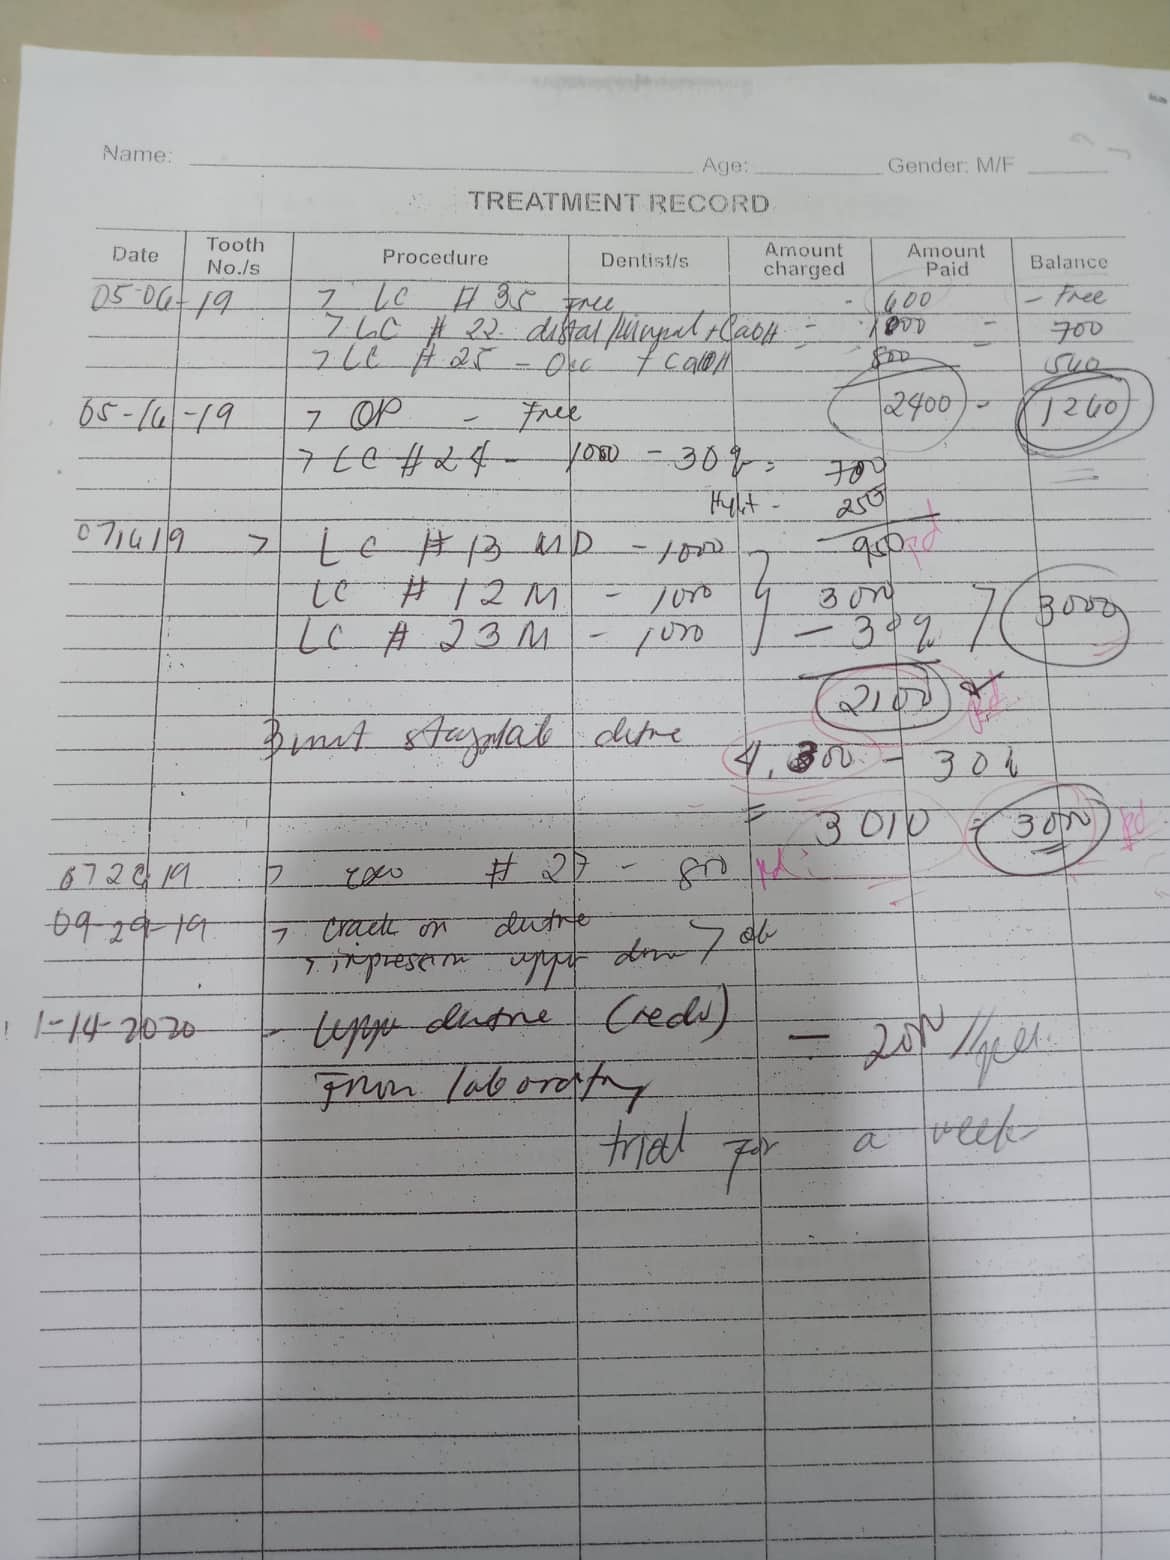 Name: Age: Gender: M/F
TREATMENT RECORD
Date Tooth No./s Procedure Dentist/s Amount charged Amount Paid Balance
05-06-19 > LC # 35 Free - 600 - Free
> LC # 22 distal/lingual + CaOH = 1000 = 700
> LC # 25 - Occ + CaOH 800 560
2400 - 1260
05-16-19 > OP - Free
> LC # 24 - 1000 - 30% = 700
250
950 pd
071619 > LC # 13 MD - 1000
LC # 12 M - 1000 3000 3000
LC # 23 M - 1000 - 30%
2100 pd
3 unit
4,300 - 30%
= 3010 = 3000 pd
> # 27 - 800 pd
09-29-19 > crack on denture
> impression upper ok
1-14-2020 - Upper denture (redo) = 2000
From laboratory
trial for a week